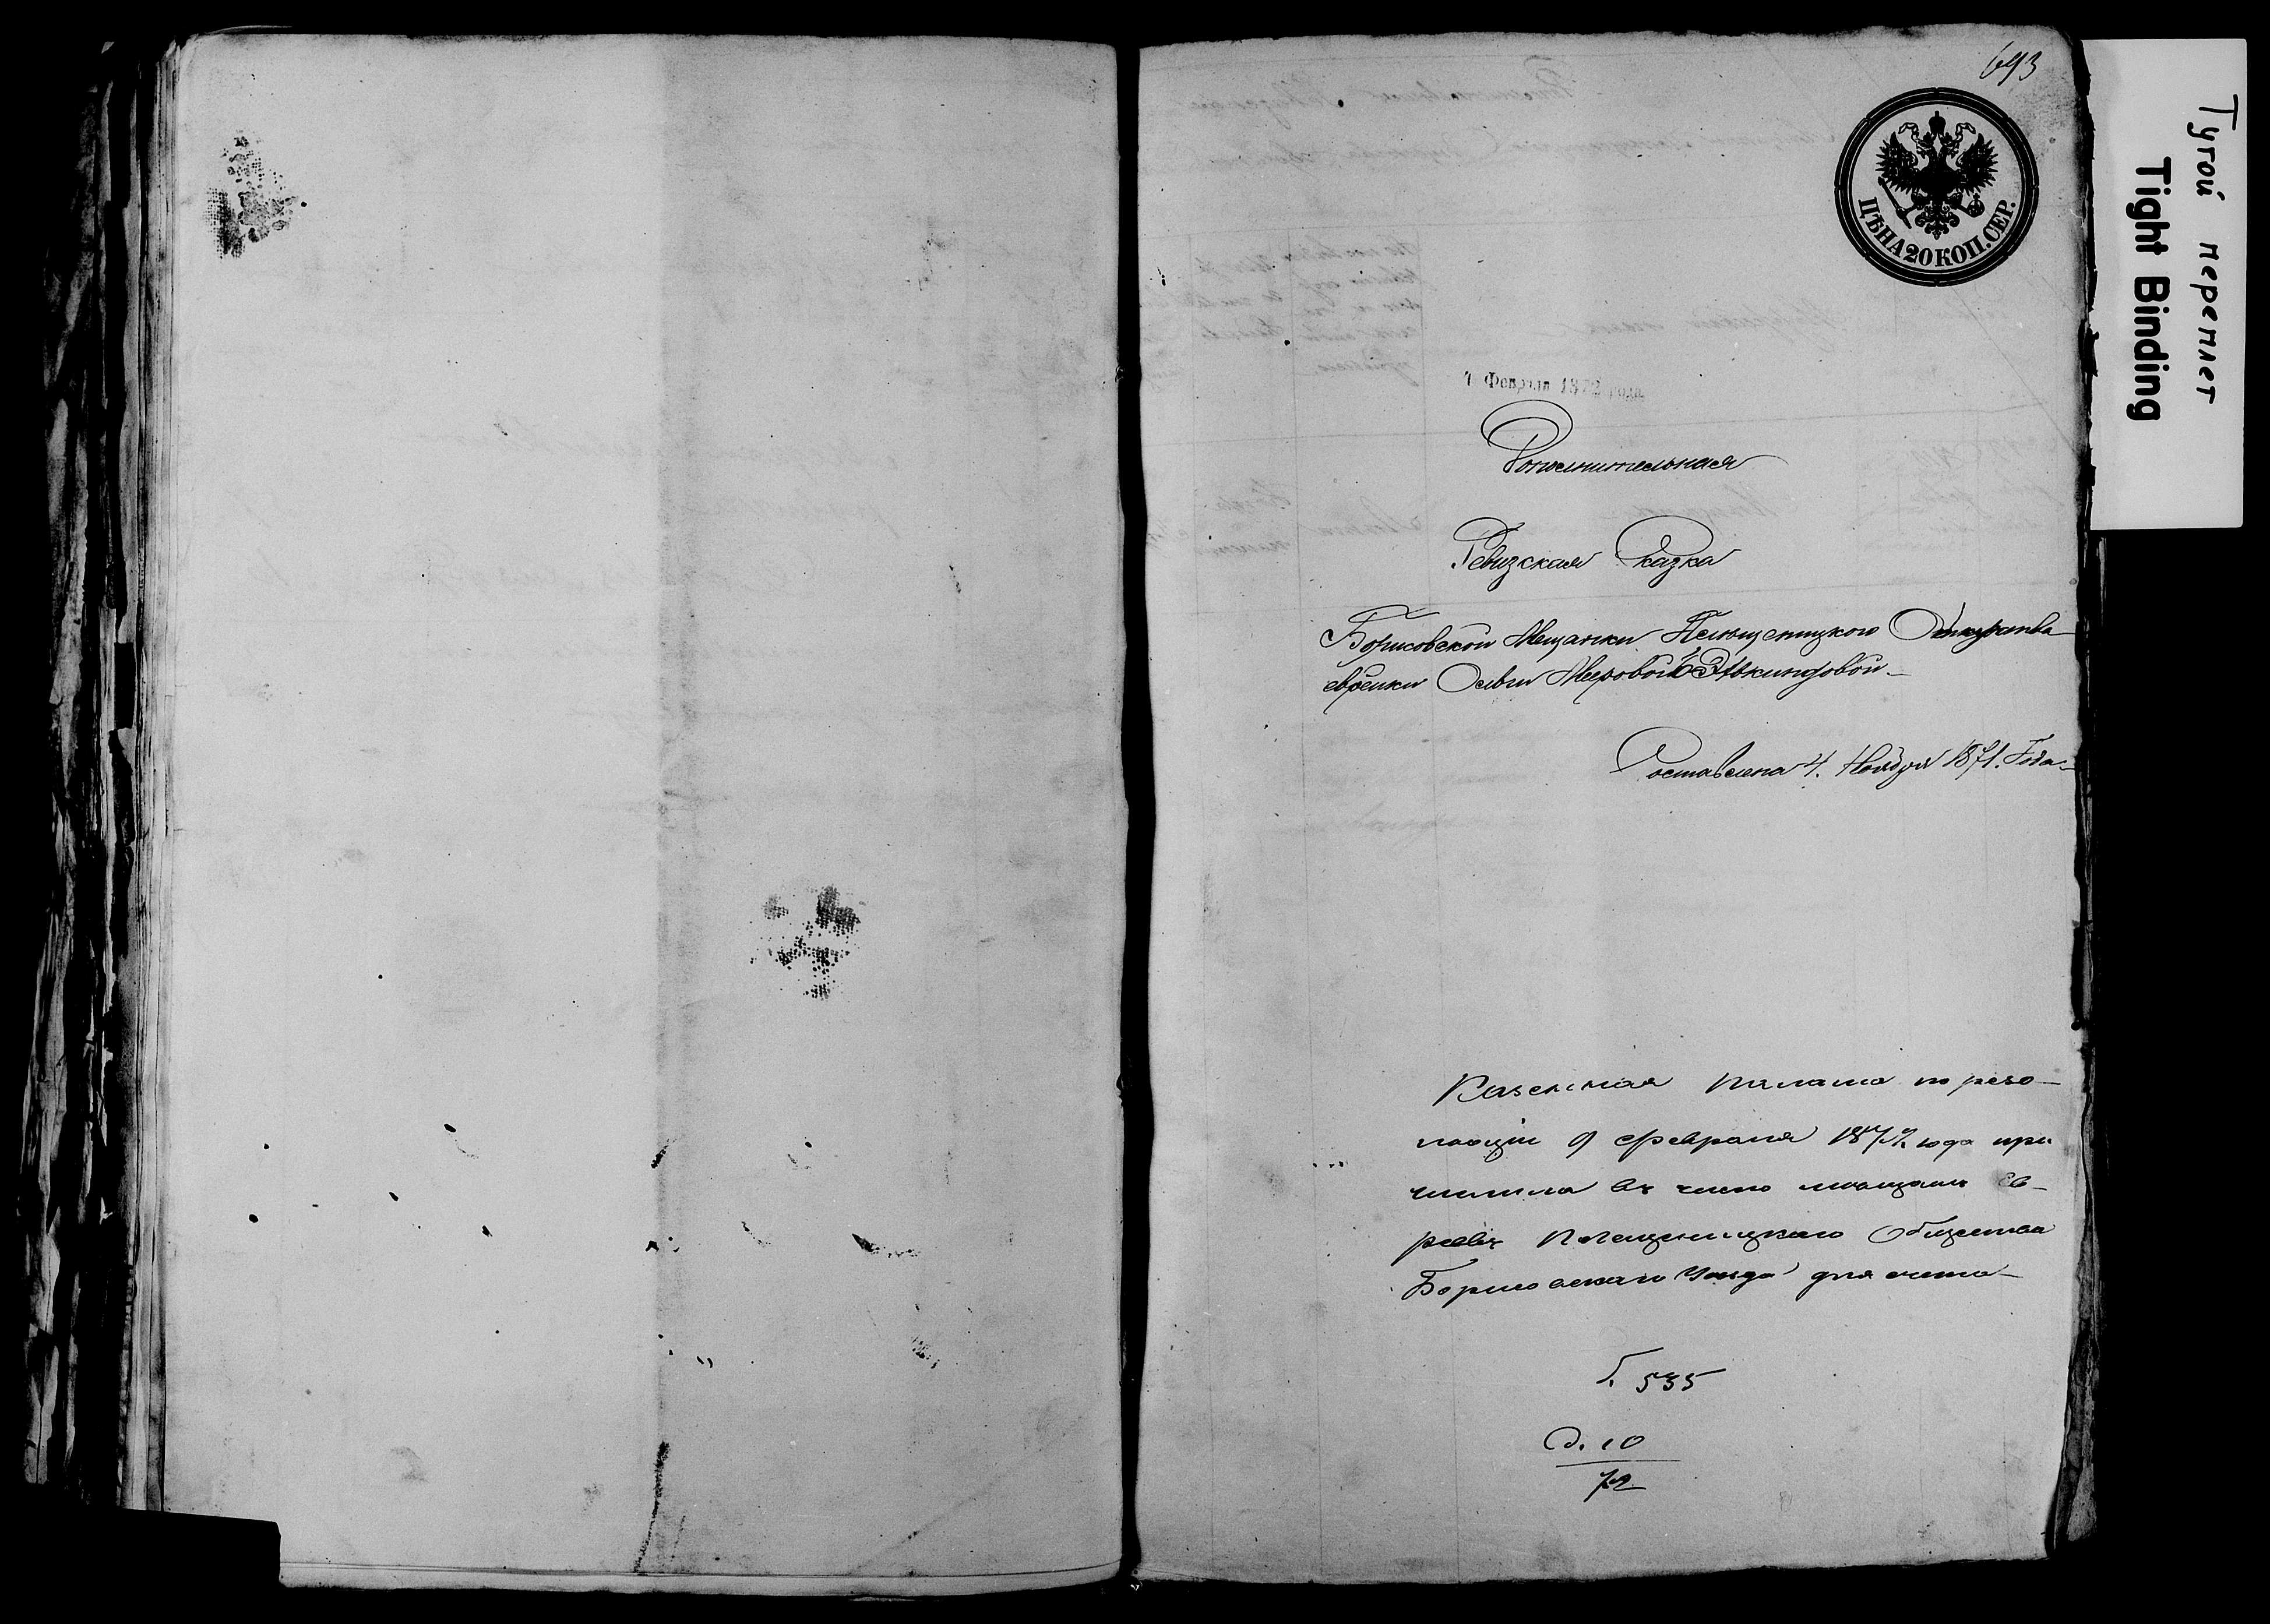 693
ЦѢНА 20 КОП. СЕР.
Тугой переплет
Tight Binding
Февраля 1872 года
Дополнительная
Ревизская Сказка
Борисовской Мещанки Плещеницкого Общества
еврейки Меровой Элькиндовой
Составлена 4. Ноября 1871. Года
Казенная палата по резо-
люціи 9 февраля 1872 года при
числила въ число мѣщанъ Ев-
реевъ Плещеницкаго Общества
Борисовскаго Уѣзда для счета
535
д. 10
72